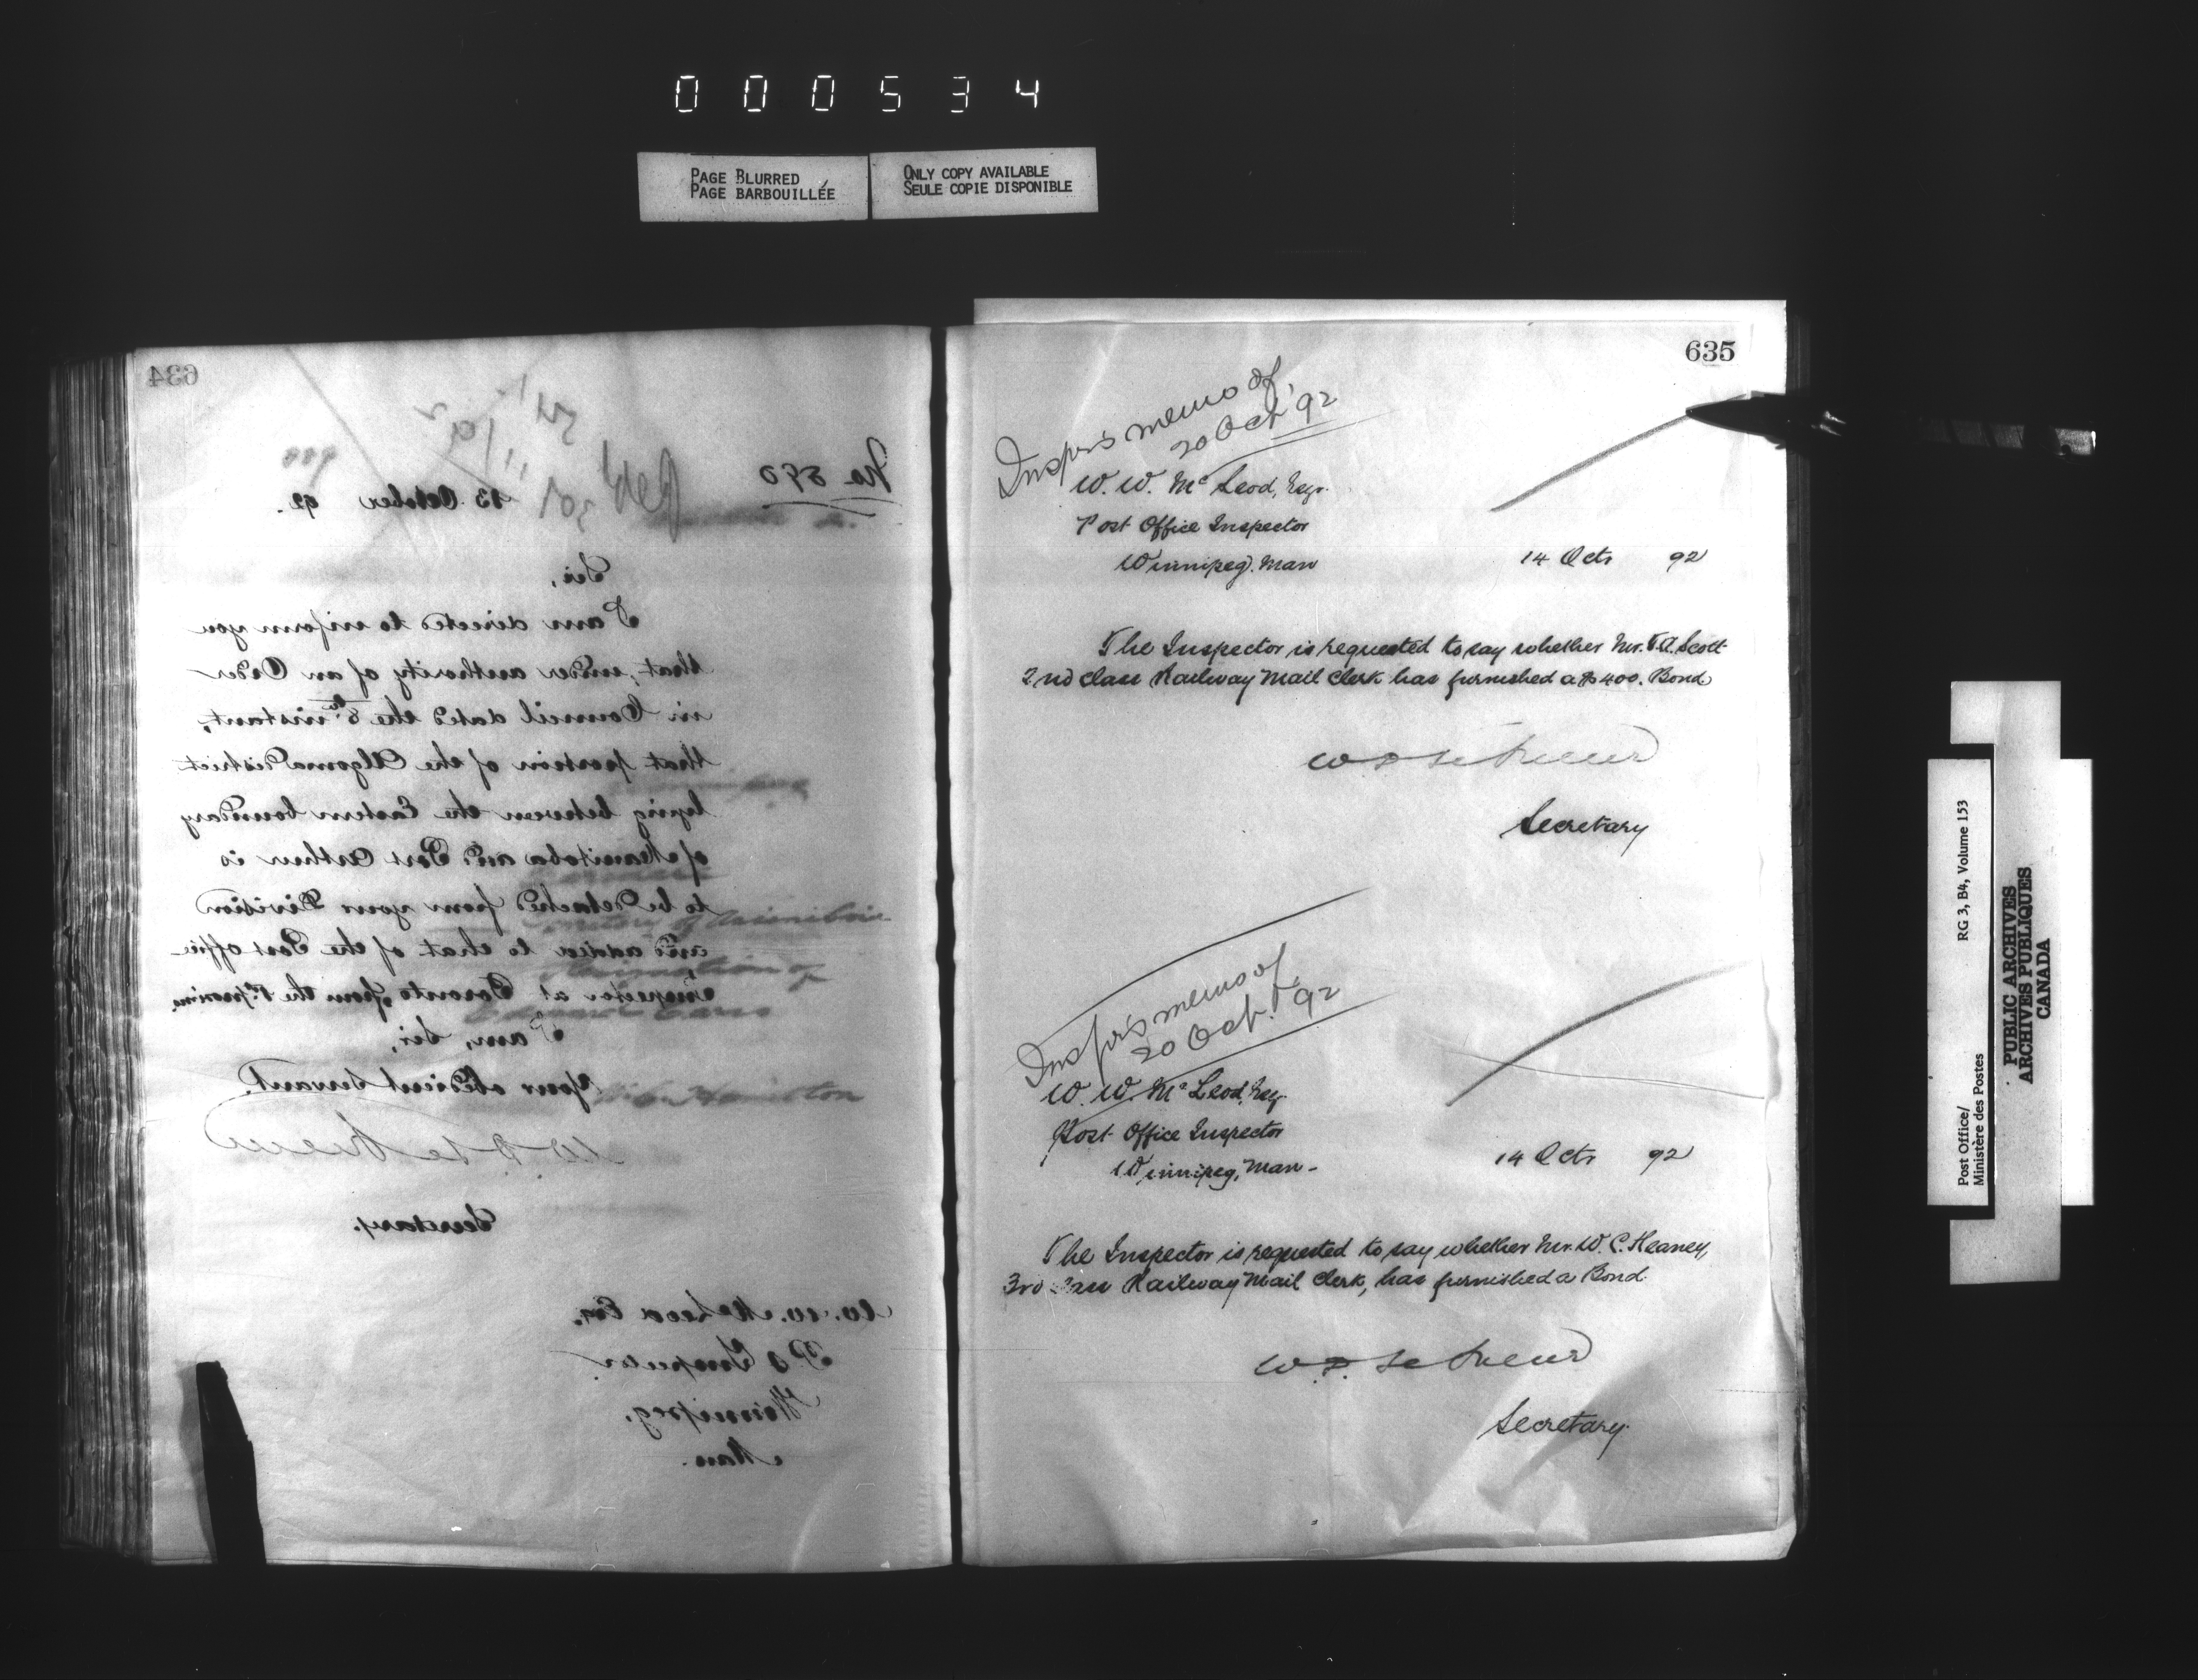 000534
PAGE BLURRED
PAGE BARBOUILLÉE
ONLY COPY AVAILABLE
SEULE COPIE DISPONIBLE
634
No 590
13 October 92.
Sir,
I am directed to inform you
that, under authority of an Order
in Council dated the 8th instant,
that portion of the Algoma District
lying between the Eastern boundary
of Manitoba and Port Arthur is
to be detached from your Division
and added to that of the Post Office
Inspector at Toronto, from the 1st proximo
I am, Sir,
Your obedient servant.
W D LeSueur
Secretary.
W. W. McLeod Esq.
P O Inspector
Winnipeg,
Man.
635
Inspr's memo of
20 Oct '92
W. W. Mc Leod, Esqr.
Post Office Inspector
Winnipeg. Man
14 Octr 92
The Inspector is requested to say whether Mr. T.A. Scott
2nd Class Railway Mail Clerk has furnished a $400. Bond
W D LeSueur
Secretary
Inspr's memo of
20 Oct. '92
W. W. Mc Leod, Esq.
Post Office Inspector
Winnipeg, Man -
14 Octr 92
The Inspector is requested to say whether Mr. W. C. Heaney,
3rd Class Railway Mail Clerk, has furnished a Bond.
W. D. LeSueur
Secretary.
Post Office/
Ministère des Postes
RG 3, B4, Volume 153
PUBLIC ARCHIVES
ARCHIVES PUBLIQUES
CANADA